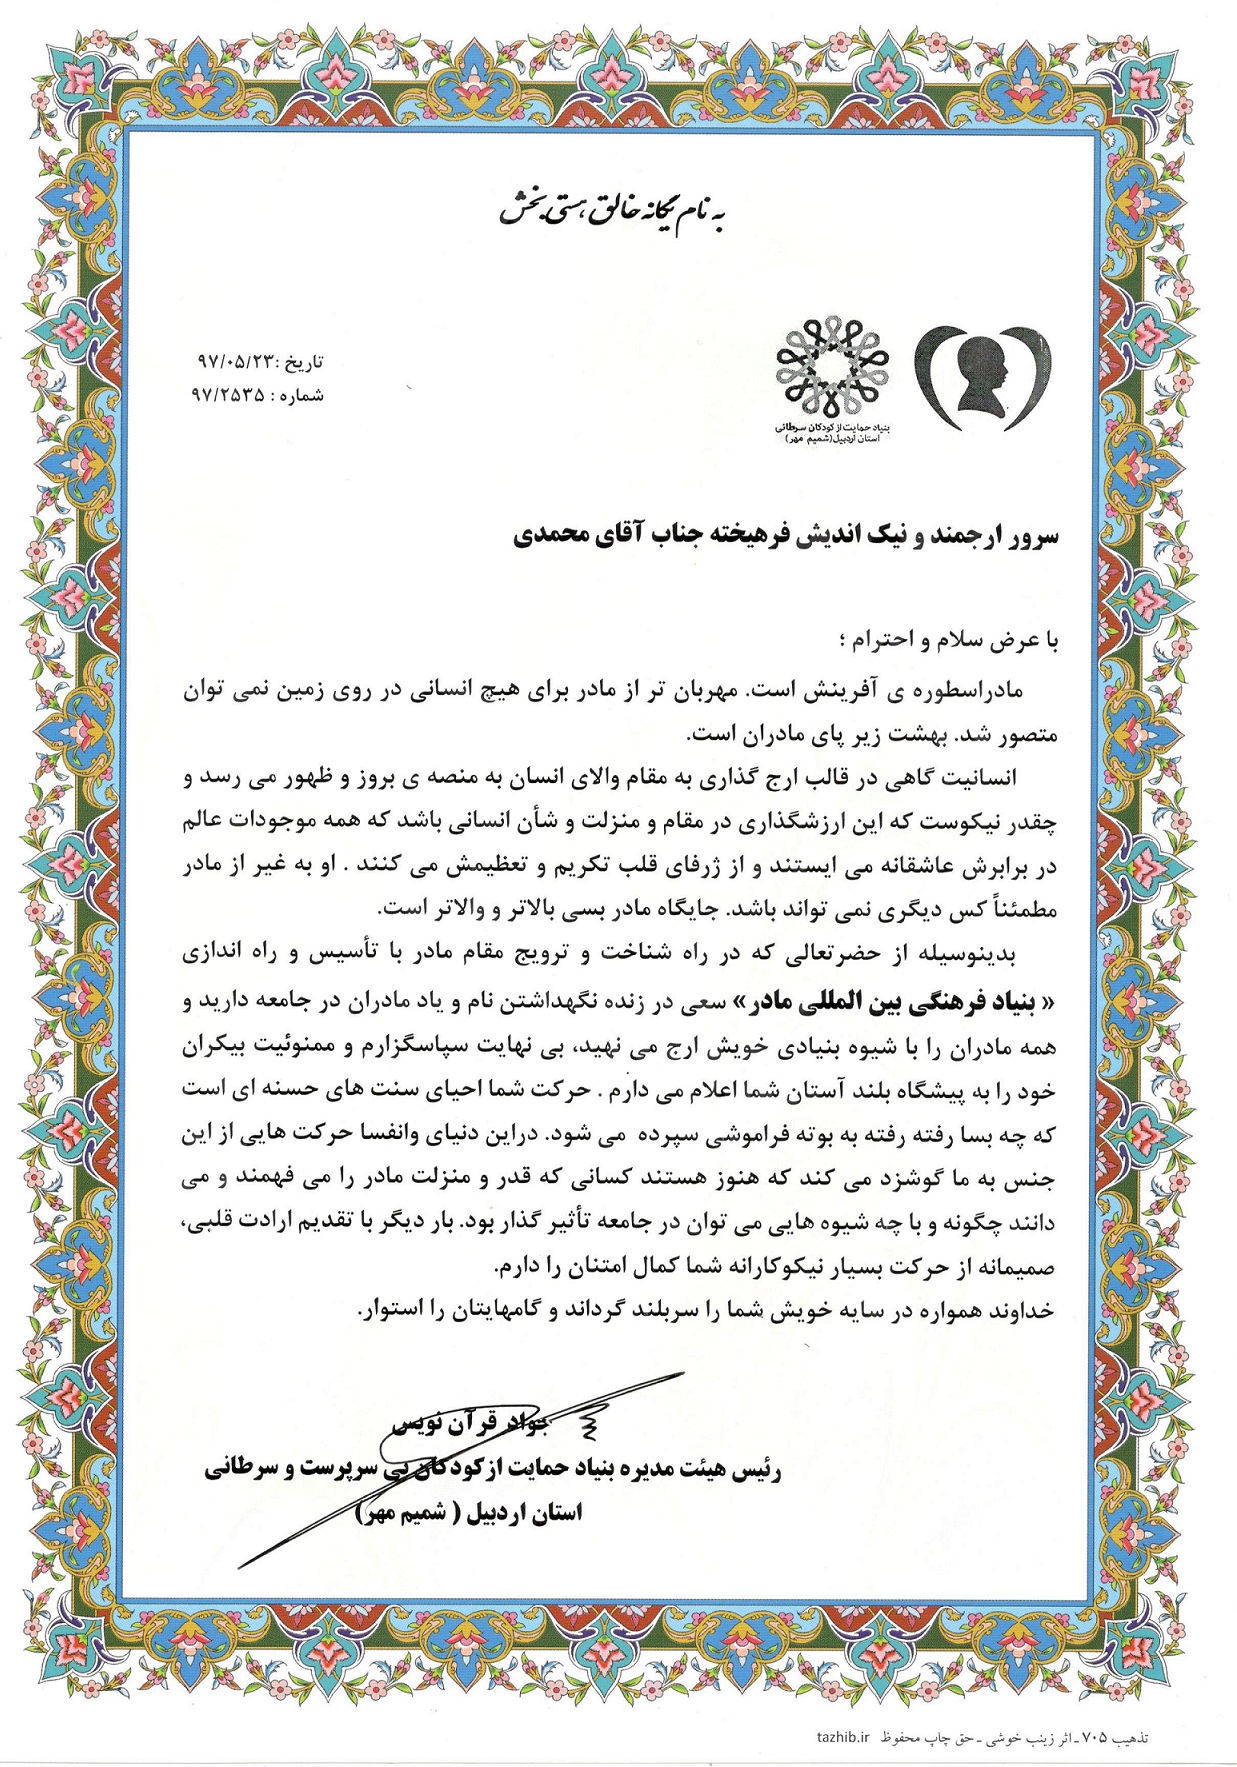 به نام یگانه خالق هستی بخش
تاریخ :۹۷/۰۵/۲۳
شماره : ۹۷/۲۵۳۵
بنیاد حمایت از کودکان سرطانی
استان اردبیل(شمیم مهر)
سرور ارجمند و نیک اندیش فرهیخته جناب آقای محمدی
با عرض سلام و احترام ؛
مادراسطوره ی آفرینش است. مهربان تر از مادر برای هیچ انسانی در روی زمین نمی توان
متصور شد. بهشت زیر پای مادران است.
انسانیت گاهی در قالب ارج گذاری به مقام والای انسان به منصه ی بروز و ظهور می رسد و
چقدر نیکوست که این ارزشگذاری در مقام و منزلت و شأن انسانی باشد که همه موجودات عالم
در برابرش عاشقانه می ایستند و از ژرفای قلب تکریم و تعظیمش می کنند . او به غیر از مادر
مطمئناً کس دیگری نمی تواند باشد. جایگاه مادر بسی بالاتر و والاتر است.
بدینوسیله از حضرتعالی که در راه شناخت و ترویج مقام مادر با تأسیس و راه اندازی
« بنیاد فرهنگی بین المللی مادر» سعی در زنده نگهداشتن نام و یاد مادران در جامعه دارید و
همه مادران را با شیوه بنیادی خویش ارج می نهید، بی نهایت سپاسگزارم و ممنوئیت بیکران
خود را به پیشگاه بلند آستان شما اعلام می دارم . حرکت شما احیای سنت های حسنه ای است
که چه بسا رفته رفته به بوته فراموشی سپرده می شود. دراین دنیای وانفسا حرکت هایی از این
جنس به ما گوشزد می کند که هنوز هستند کسانی که قدر و منزلت مادر را می فهمند و می
دانند چگونه و با چه شیوه هایی می توان در جامعه تأثیر گذار بود. بار دیگر با تقدیم ارادت قلبی،
صمیمانه از حرکت بسیار نیکوکارانه شما کمال امتنان را دارم.
خداوند همواره در سایه خویش شما را سربلند گرداند و گامهایتان را استوار.
جواد قرآن نویس
رئیس هیئت مدیره بنیاد حمایت ازکودکان بی سرپرست و سرطانی
استان اردبیل ( شمیم مهر)
تذهیب ۷۰۵ ـ اثر زینب خوشی ـ حق چاپ محفوظ tazhib.ir